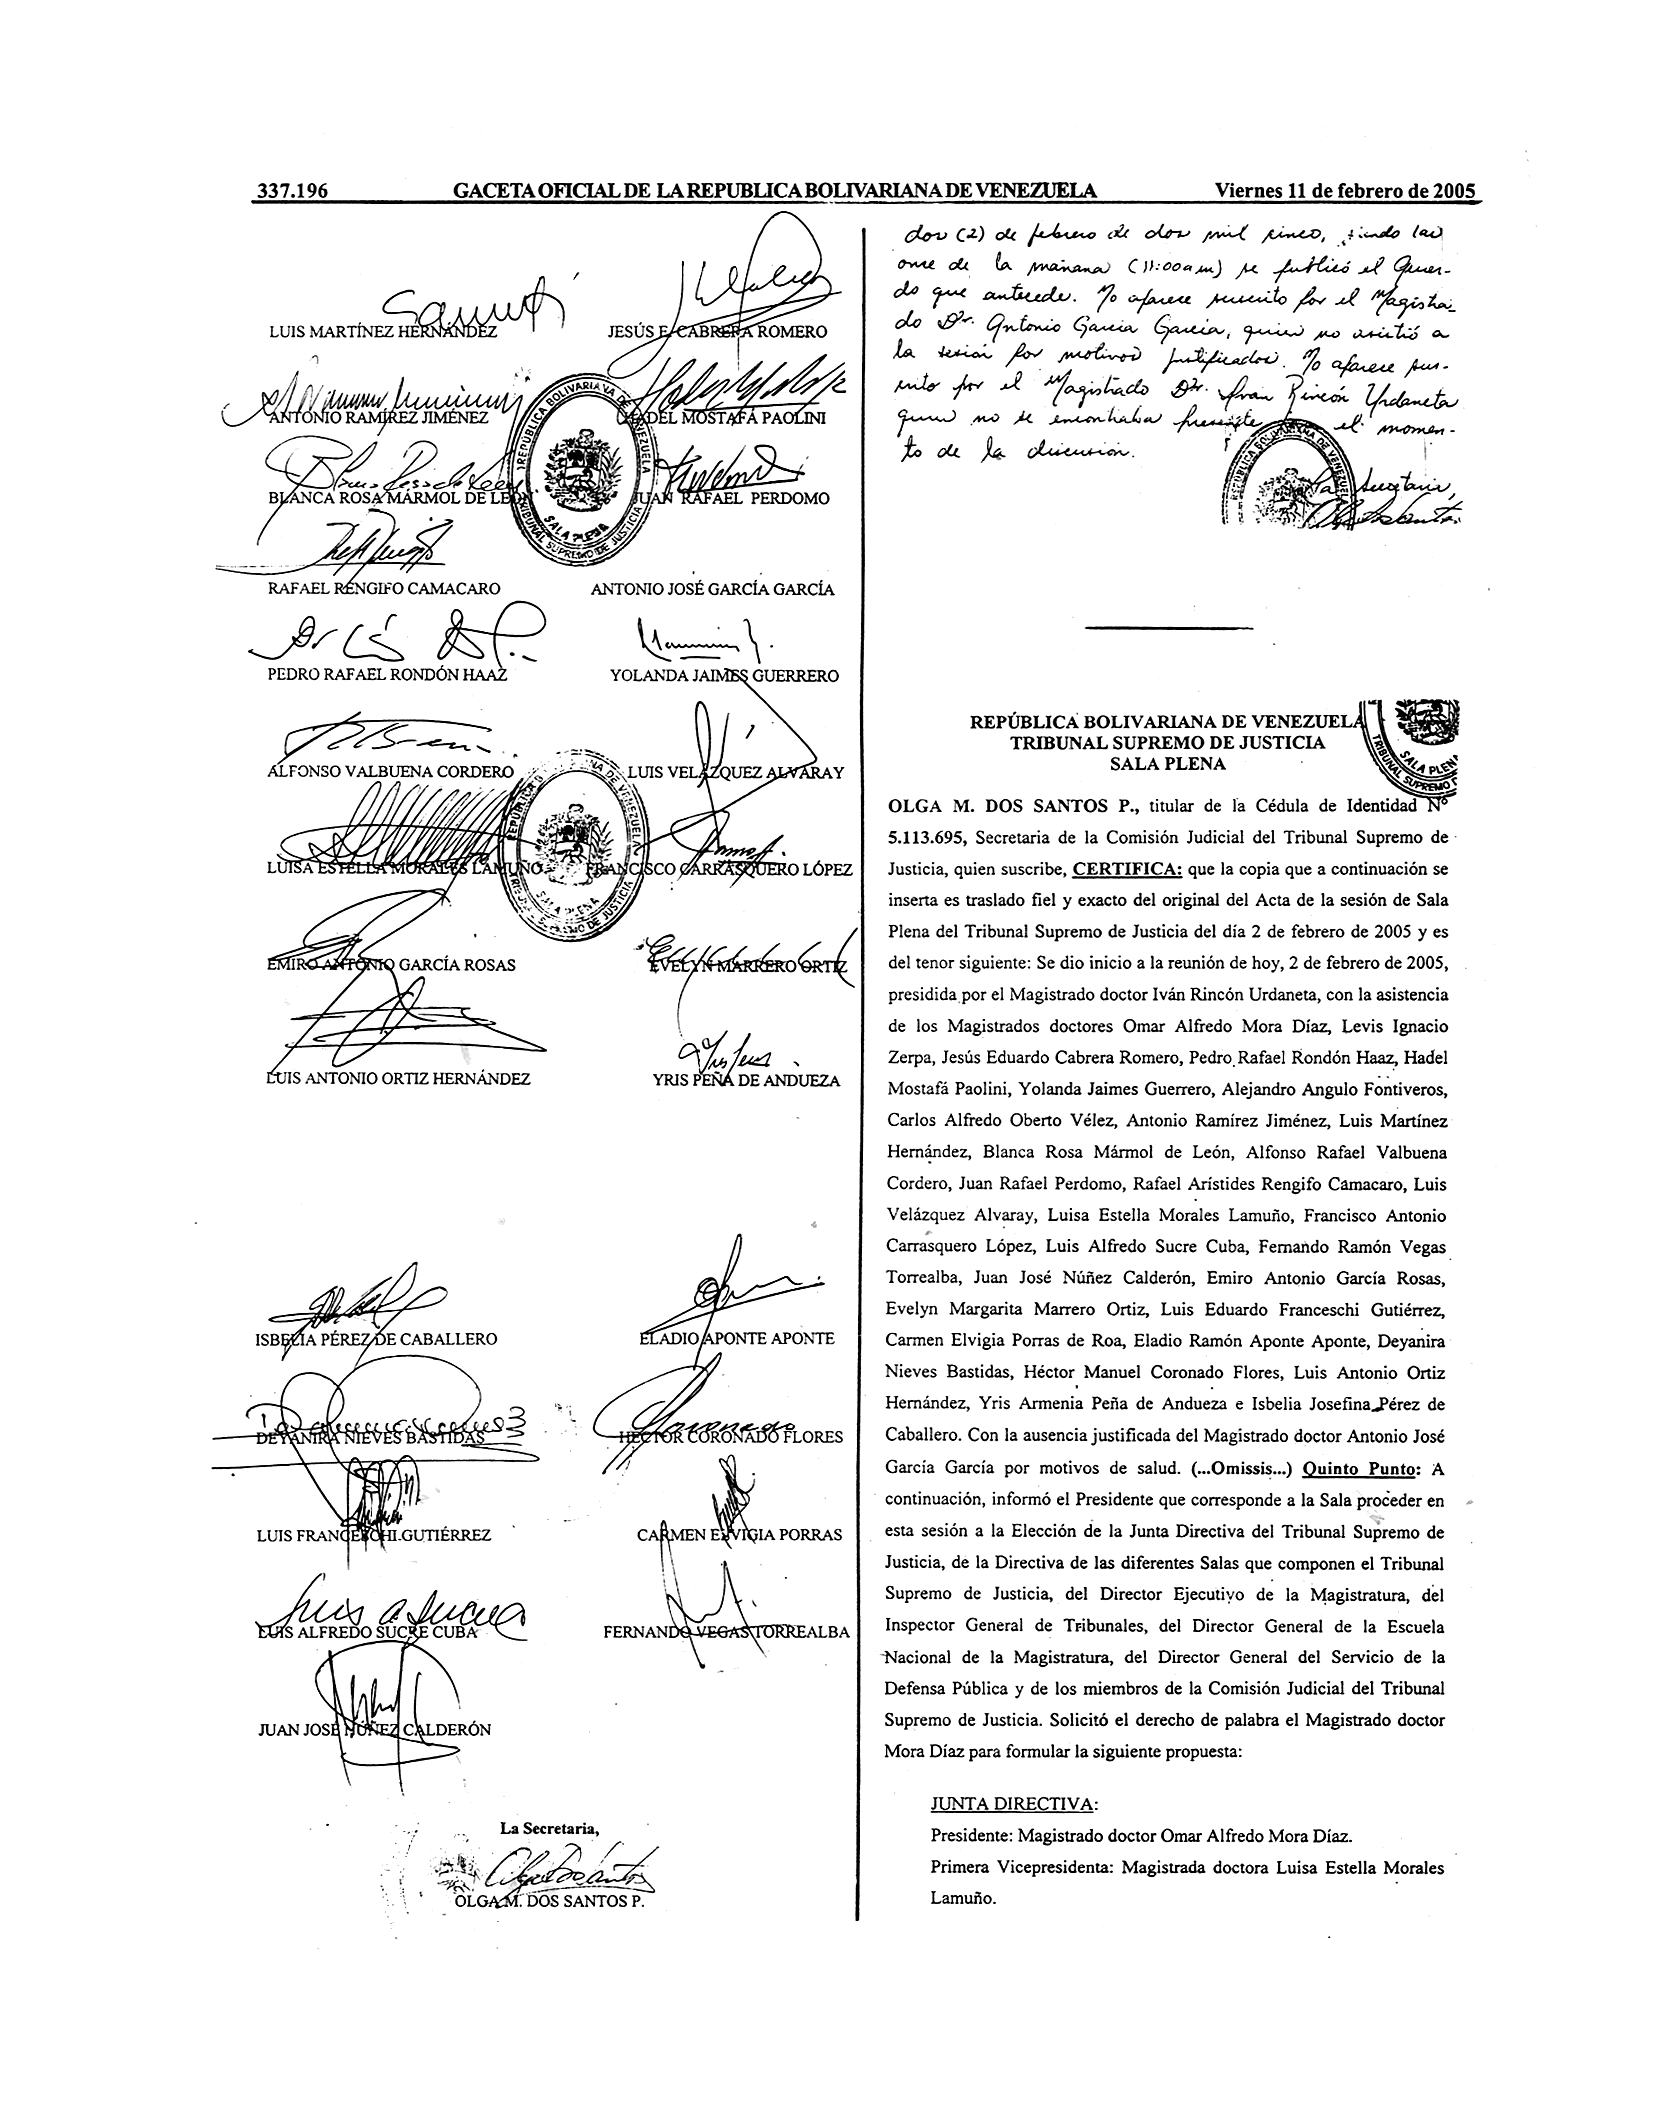 337.196 GACETA OFICIAL DE LA REPUBLICA BOLIVARIANA DE VENEZUELA Viernes 11 de febrero de 2005
LUIS MARTÍNEZ HERNÁNDEZ JESÚS E. CABRERA ROMERO
ANTONIO RAMÍREZ JIMÉNEZ HADEL MOSTAFÁ PAOLINI
BLANCA ROSA MÁRMOL DE LEÓN JUAN RAFAEL PERDOMO
REPÚBLICA BOLIVARIANA DE VENEZUELA
TRIBUNAL SUPREMO DE JUSTICIA
SALA PLENA
RAFAEL RENGIFO CAMACARO ANTONIO JOSÉ GARCÍA GARCÍA
PEDRO RAFAEL RONDÓN HAAZ YOLANDA JAIMES GUERRERO
ALFONSO VALBUENA CORDERO LUIS VELÁZQUEZ ALVARAY
LUISA ESTELLA MORALES LAMUÑO FRANCISCO CARRASQUERO LÓPEZ
EMIRO ANTONIO GARCÍA ROSAS EVELYN MARRERO ORTIZ
LUIS ANTONIO ORTIZ HERNÁNDEZ YRIS PEÑA DE ANDUEZA
ISBELIA PÉREZ DE CABALLERO ELADIO APONTE APONTE
DEYANIRA NIEVES BASTIDAS HÉCTOR CORONADO FLORES
LUIS FRANCESCHI GUTIÉRREZ CARMEN ELVIGIA PORRAS
LUIS ALFREDO SUCRE CUBA FERNANDO VEGAS TORREALBA
JUAN JOSÉ NÚÑEZ CALDERÓN
La Secretaria,
OLGA M. DOS SANTOS P.
dos (2) de febrero de dos mil cinco, siendo las
once de la mañana (11:00am) se publicó el Acuer-
do que antecede. No aparece suscrito por el Magistra-
do Dr. Antonio García García, quien no asistió a
la sesión por motivos justificados. No aparece sus-
crito por el Magistrado Dr. Iván Rincón Urdaneta
quien no se encontraba presente el momen-
to de la discusión.
La Secretaria,
REPÚBLICA BOLIVARIANA DE VENEZUELA
TRIBUNAL SUPREMO DE JUSTICIA
SALA PLENA
OLGA M. DOS SANTOS P., titular de la Cédula de Identidad Nº
5.113.695, Secretaria de la Comisión Judicial del Tribunal Supremo de
Justicia, quien suscribe, CERTIFICA: que la copia que a continuación se
inserta es traslado fiel y exacto del original del Acta de la sesión de Sala
Plena del Tribunal Supremo de Justicia del día 2 de febrero de 2005 y es
del tenor siguiente: Se dio inicio a la reunión de hoy, 2 de febrero de 2005,
presidida por el Magistrado doctor Iván Rincón Urdaneta, con la asistencia
de los Magistrados doctores Omar Alfredo Mora Díaz, Levis Ignacio
Zerpa, Jesús Eduardo Cabrera Romero, Pedro Rafael Rondón Haaz, Hadel
Mostafá Paolini, Yolanda Jaimes Guerrero, Alejandro Angulo Fontiveros,
Carlos Alfredo Oberto Vélez, Antonio Ramírez Jiménez, Luis Martínez
Hernández, Blanca Rosa Mármol de León, Alfonso Rafael Valbuena
Cordero, Juan Rafael Perdomo, Rafael Arístides Rengifo Camacaro, Luis
Velázquez Alvaray, Luisa Estella Morales Lamuño, Francisco Antonio
Carrasquero López, Luis Alfredo Sucre Cuba, Fernando Ramón Vegas
Torrealba, Juan José Núñez Calderón, Emiro Antonio García Rosas,
Evelyn Margarita Marrero Ortiz, Luis Eduardo Franceschi Gutiérrez,
Carmen Elvigia Porras de Roa, Eladio Ramón Aponte Aponte, Deyanira
Nieves Bastidas, Héctor Manuel Coronado Flores, Luis Antonio Ortiz
Hernández, Yris Armenia Peña de Andueza e Isbelia Josefina Pérez de
Caballero. Con la ausencia justificada del Magistrado doctor Antonio José
García García por motivos de salud. (...Omissis...) Quinto Punto: A
continuación, informó el Presidente que corresponde a la Sala proceder en
esta sesión a la Elección de la Junta Directiva del Tribunal Supremo de
Justicia, de la Directiva de las diferentes Salas que componen el Tribunal
Supremo de Justicia, del Director Ejecutivo de la Magistratura, del
Inspector General de Tribunales, del Director General de la Escuela
Nacional de la Magistratura, del Director General del Servicio de la
Defensa Pública y de los miembros de la Comisión Judicial del Tribunal
Supremo de Justicia. Solicitó el derecho de palabra el Magistrado doctor
Mora Díaz para formular la siguiente propuesta:
JUNTA DIRECTIVA:
Presidente: Magistrado doctor Omar Alfredo Mora Díaz.
Primera Vicepresidenta: Magistrada doctora Luisa Estella Morales
Lamuño.